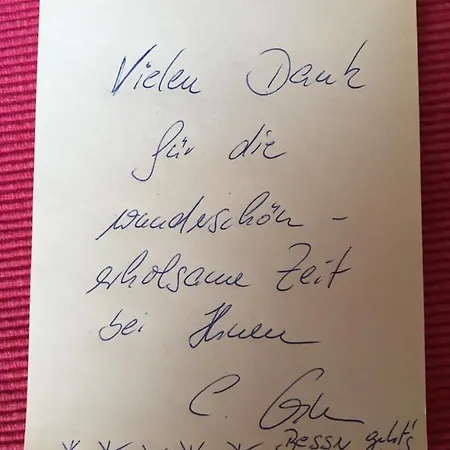 Vielen Dank
für die
wunderschön -
erholsame Zeit
bei Ihnen
C.
Besser geht's